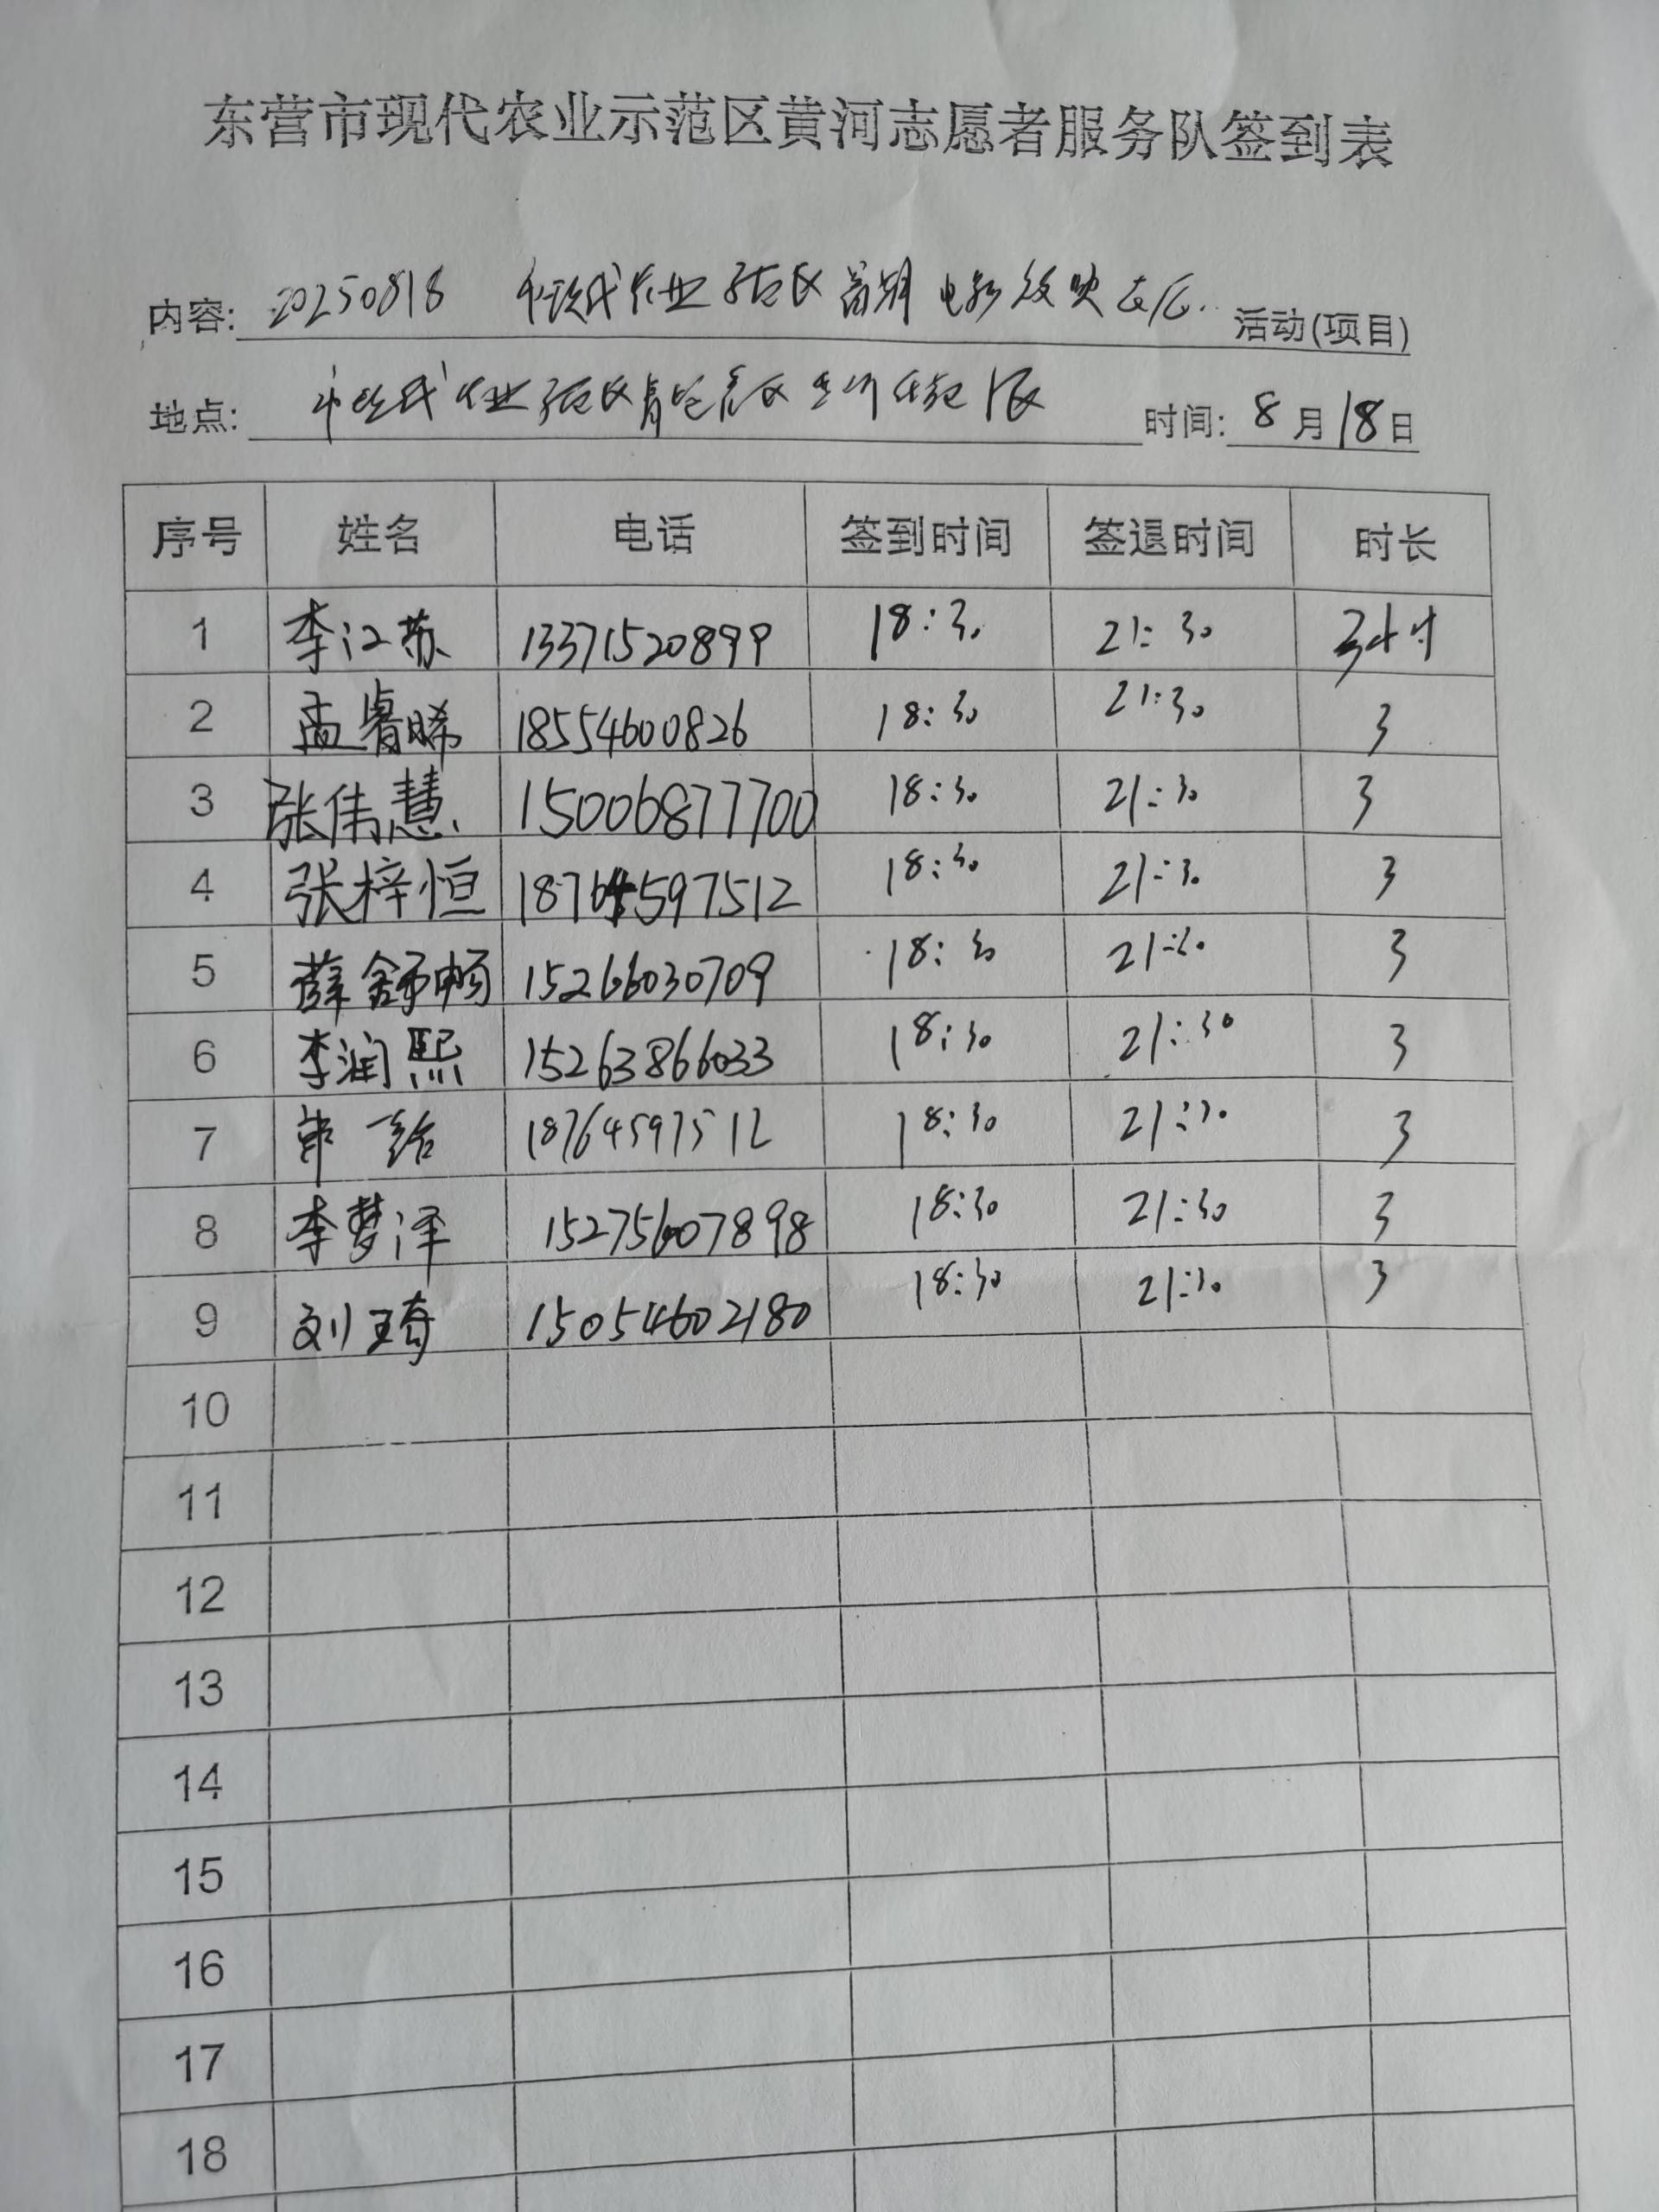 东营市现代农业示范区黄河志愿者服务队签到表
内容: 20250818 市现代农业示范区暑期电影放映 活动(项目)
地点: 市现代农业示范区 时间: 8月18日
序号 姓名 电话 签到时间 签退时间 时长
1 李江苏 13371520899 18:30 21:30 3小时
2 孟睿晞 18554600826 18:30 21:30 3
3 张伟慧 15006877700 18:30 21:30 3
4 张梓恒 18764597512 18:30 21:30 3
5 薛舒畅 15266030709 18:30 21:30 3
6 李润熙 15263866033 18:30 21:30 3
7 18764597512 18:30 21:30 3
8 李梦泽 15275607898 18:30 21:30 3
9 刘王奇 15054602180 18:30 21:30 3
10
11
12
13
14
15
16
17
18